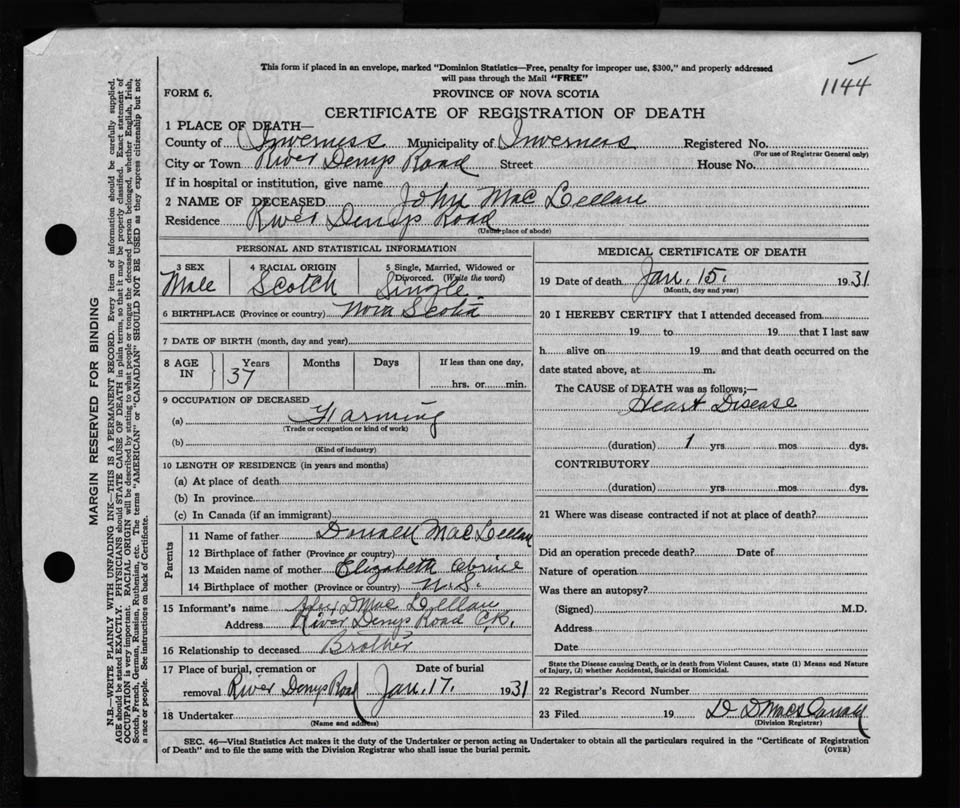 This form if placed in an envelope, marked "Dominion Statistics—Free, penalty for improper use, $300," and properly addressed
will pass through the Mail "FREE"
1144
FORM 6.
PROVINCE OF NOVA SCOTIA
CERTIFICATE OF REGISTRATION OF DEATH
1 PLACE OF DEATH—
County of Inverness Municipality of Inverness Registered No.
(For use of Registrar General only)
City or Town River Denys Road Street House No.
If in hospital or institution, give name
2 NAME OF DECEASED John Mac Lellan
Residence River Denys Road
(Usual place of abode)
PERSONAL AND STATISTICAL INFORMATION
3 SEX 4 RACIAL ORIGIN 5 Single, Married, Widowed or Divorced. (Write the word)
Male Scotch Single
6 BIRTHPLACE (Province or country) Nova Scotia
7 DATE OF BIRTH (month, day and year)
8 AGE IN Years Months Days If less than one day,
37 hrs. or min.
9 OCCUPATION OF DECEASED
(a) Farming
(Trade or occupation or kind of work)
(b)
(Kind of industry)
10 LENGTH OF RESIDENCE (in years and months)
(a) At place of death
(b) In province
(c) In Canada (if an immigrant)
Parents
11 Name of father Donald MacLellan
12 Birthplace of father (Province or country)
13 Maiden name of mother Elizabeth
14 Birthplace of mother (Province or country) N.S.
15 Informant's name Alex D Mac Lellan
Address River Denys Road C.B.
16 Relationship to deceased Brother
17 Place of burial, cremation or removal Date of burial
River Denys Road Jan. 17. 1931
18 Undertaker
(Name and address)
MEDICAL CERTIFICATE OF DEATH
19 Date of death Jan. 15. 1931
(Month, day and year)
20 I HEREBY CERTIFY that I attended deceased from
19 to 19 that I last saw
h alive on 19 and that death occurred on the
date stated above, at m.
The CAUSE of DEATH was as follows;—
Heart Disease
(duration) 1 yrs mos dys.
CONTRIBUTORY
(duration) yrs mos dys.
21 Where was disease contracted if not at place of death?
Did an operation precede death? Date of
Nature of operation
Was there an autopsy?
(Signed) M.D.
Address
Date
State the Disease causing Death, or in death from Violent Causes, state (1) Means and Nature
of Injury, (2) whether Accidental, Suicidal or Homicidal.
22 Registrar's Record Number
23 Filed 19
(Division Registrar)
SEC. 46—Vital Statistics Act makes it the duty of the Undertaker or person acting as Undertaker to obtain all the particulars required in the "Certificate of Registration
of Death" and to file the same with the Division Registrar who shall issue the burial permit.
(OVER)
MARGIN RESERVED FOR BINDING
N.B.—WRITE PLAINLY WITH UNFADING INK—THIS IS A PERMANENT RECORD. Every item of information should be carefully supplied.
AGE should be stated EXACTLY. PHYSICIANS should STATE CAUSE OF DEATH in plain terms, so that it may be properly classified. Exact statement of
OCCUPATION is very important. RACIAL ORIGIN will be described by stating to what people or tongue the deceased person belonged, whether English, Irish,
Scotch, French, German, Russian, Ruthenian, etc. The terms "AMERICAN" or "CANADIAN" SHOULD NOT BE USED as they express citizenship but not
a race or people. See instructions on back of Certificate.